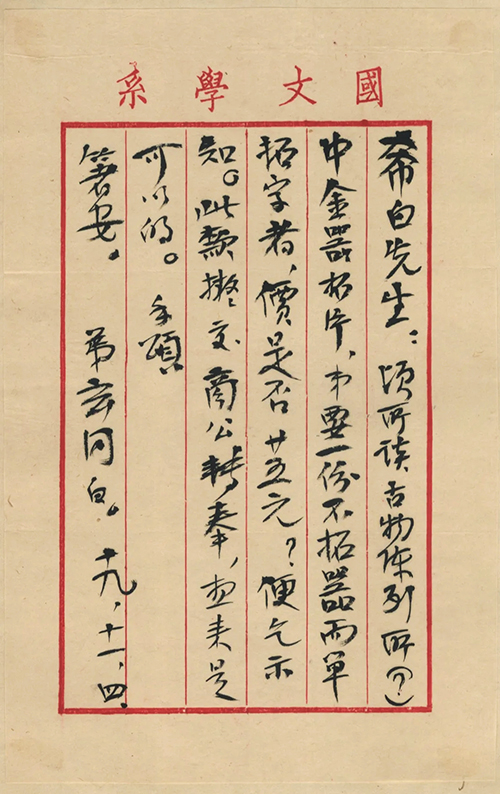 國文學系
希白先生:頃所談古物陳列所(?)
中金器拓片,弟要一份不拓器而單
拓字者,價是否廿五元?便乞示
知。此款擬交公轉奉,想來是
可以的。手頌
著安。
弟玄同白。 十九,十一,四.